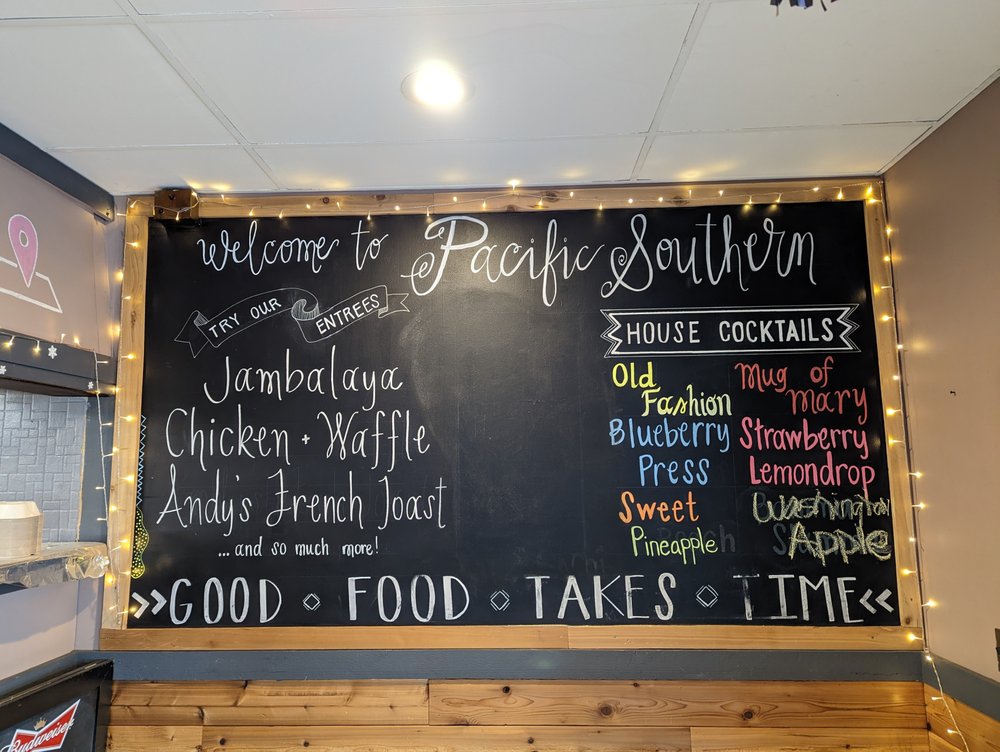 Welcome to Pacific Southern
TRY OUR ENTREES
Jambalaya
Chicken + Waffle
Andy's French Toast
... and so much more!
HOUSE COCKTAILS
Old
Fashion
Blueberry
Press
Sweet
Pineapple
Mug of
Mary
Strawberry
Lemondrop
Washington
Apple
>>GOOD ◇ FOOD ◇ TAKES ◇ TIME<<
Budweiser